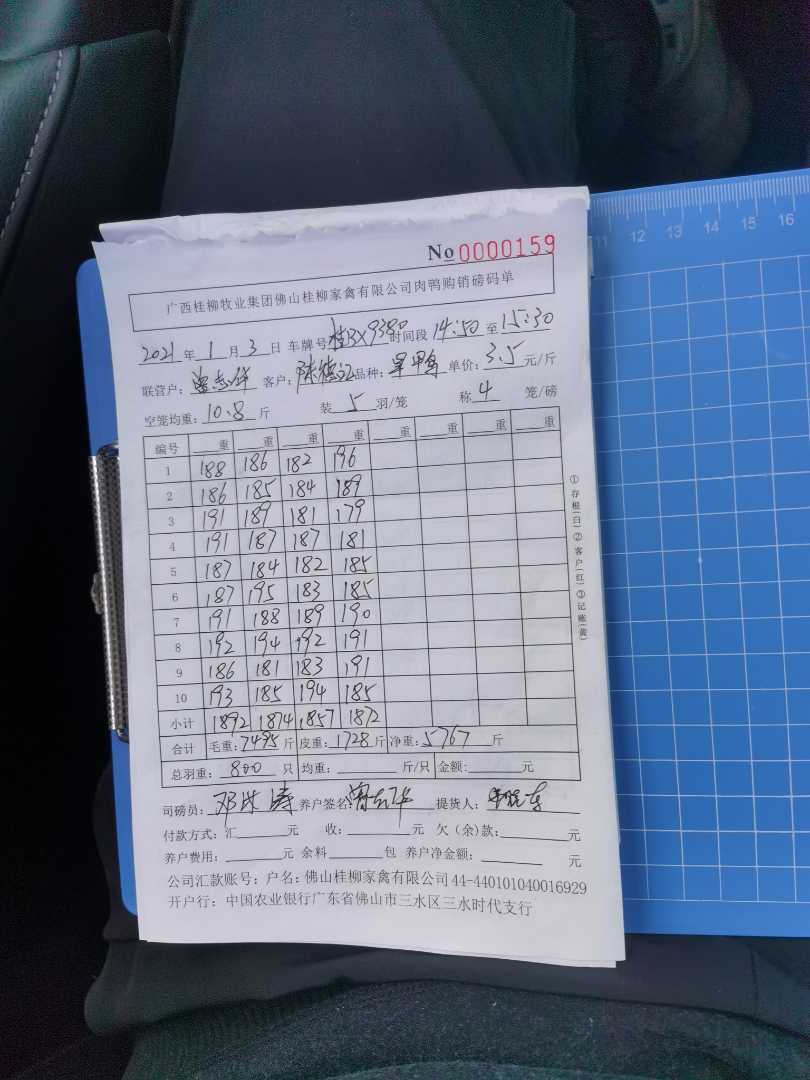 No 0000159
广西桂柳牧业集团佛山桂柳家禽有限公司肉鸭购销磅码单
2021 年 1 月 3 日 车牌号 桂BX9380 时间段 14:50 至 15:30
联营户: 曾志华 客户: 陈德 品种: 单价: 3.5 元/斤
空笼均重: 10.8 斤 装 5 羽/笼 称 4 笼/磅
编号 重 重 重 重 重 重 重
1 188 186 182 196
2 186 185 184 189
3 191 189 181 179
4 191 187 187 181
5 187 184 182 185
6 187 195 183 185
7 191 188 189 190
8 192 194 192 191
9 186 181 183 191
10 193 185 194 185
小计 1892 1874 1857 1872
合计 毛重: 7495 斤 皮重: 1728 斤 净重: 5767 斤
总羽重: 800 只 均重: 斤/只 金额: 元
司磅员: 养户签名: 提货人:
付款方式: 汇 元 收: 元 欠(余)款: 元
养户费用: 元 余料 包 养户净金额: 元
公司汇款账号: 户名: 佛山桂柳家禽有限公司 44-440101040016929
开户行: 中国农业银行广东省佛山市三水区三水时代支行
①存根(白)②客户(红)③记账(黄)
11 12 13 14 15 16